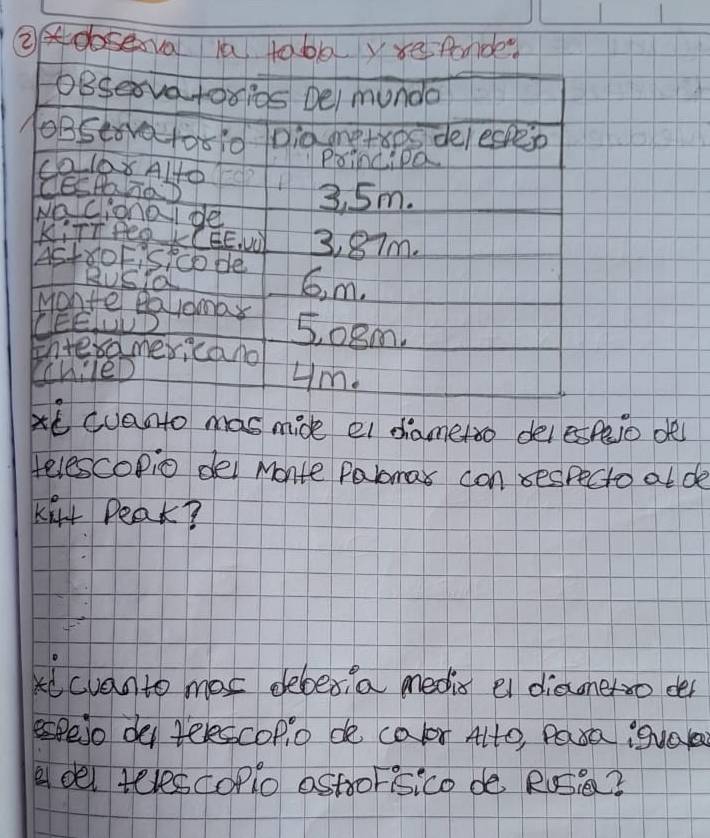 ② *observa la tabla y responde:
OBservatorios Del mundo
OBservatorio Diametros del espejo
Principa
Calar Alto
(España)
3,5m.
Nacional de
Kitt Peak (EE.uu)
3,87m.
Astrofisico de
Rusia
6,m.
Monte Palomar
(EE.UU)
5,08m.
Interamericano
(chile)
4m.
*¿cuanto mas mide el diametro del espejo del
telescopio del Monte Palomar con respecto al de
Kitt Peak?
*¿cuanto mas deberia medir el diametro del
espejo del telescopio de calar Alto, Para igualar
el del telescopio astrofisico de Rusia?